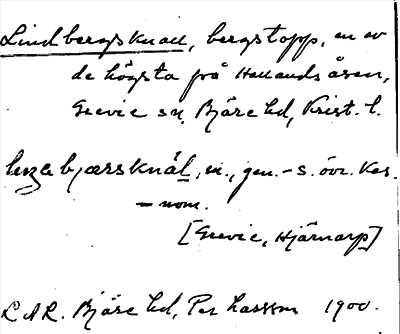 Lindbergsknall, bergstopp, en av
de högsta på Hallandsåsen,
Grevie sn, Bjäre hd, Krist. l.
bjærsknäl, m., gen. -s. övr. kas.
= nom.
[Grevie, Hjärnarp]
L.A.R. Bjäre hd, Per Larsson 1900.